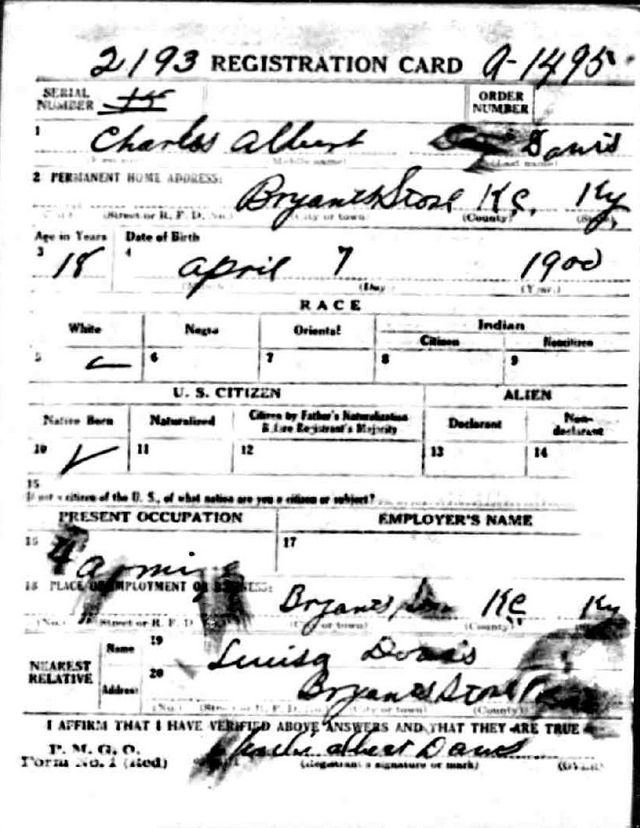 2193 REGISTRATION CARD A-1495
SERIAL NUMBER ORDER NUMBER
1 Charles Albert Davis
(Middle name) (Last name)
2 PERMANENT HOME ADDRESS:
Bryants Store K.C. Ky.
(No.) (Street or R. F. D. No.) (City or town) (County) (State)
Age in Years Date of Birth
3 18 4 April 7 1900
(Month) (Day) (Year)
RACE
White Negro Oriental Indian
Citizen Noncitizen
5 6 7 8 9
U. S. CITIZEN ALIEN
Native Born Naturalized Citizen by Father's Naturalization Before Registrant's Majority Declarant Non-declarant
10 ✓ 11 12 13 14
15
If not a citizen of the U. S., of what nation are you a citizen or subject?
PRESENT OCCUPATION EMPLOYER'S NAME
16 Farming 17
18 PLACE OF EMPLOYMENT OR BUSINESS:
Bryants KC Ky
(No.) (Street or R. F. D. (City or town) (County)
NEAREST RELATIVE Name 19 Luisa Davis
Address 20 Bryants Store
(No.) (Street or R. F. D. No.) (City or town) (County)
I AFFIRM THAT I HAVE VERIFIED ABOVE ANSWERS AND THAT THEY ARE TRUE
P. M. G. O.
Form No. 1 (Red) Charlie Albert Davis
(Registrant's signature or mark) (OVER)